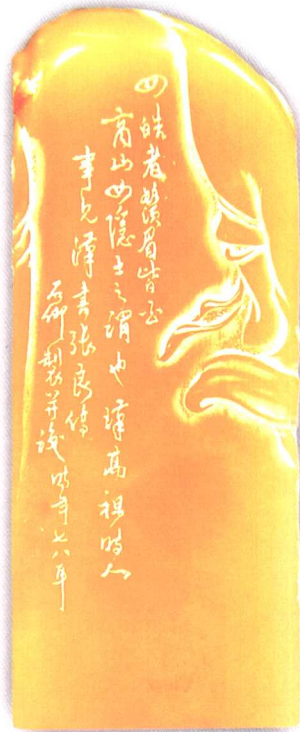 四皓老鬚眉皆白
商山四隱士之謂也漢高祖時人
事見漢書張良傳
石卿製並識時年七八年